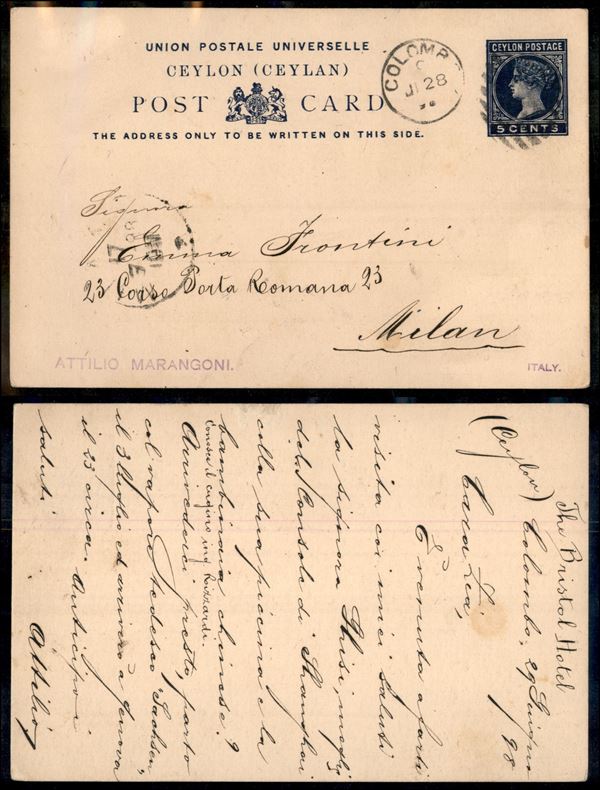 UNION POSTALE UNIVERSELLE
CEYLON (CEYLAN)
POST CARD
THE ADDRESS ONLY TO BE WRITTEN ON THIS SIDE.
COLOMB
JU 28
CEYLON POSTAGE
5 CENTS
Signora
Emma Frontini
23 Corso Porta Romana 23
Milan
ATTILIO MARANGONI.
ITALY.
The Bristol Hotel
(Ceylon) Colombo, 29 Giugno 98
Cara Lea,
È venuta a farti
visita coi miei saluti
la signora Ghisi, moglie
del Console di Shanghai
colla sua piccina e la
bambinaia chinese?
Conosce il cugino ing
Arrivederci presto, parto
col vapore tedesco Sachsen,
il 3 luglio ed arriverò a Genova
il 23 circa. Anticipo i
saluti
Attilio